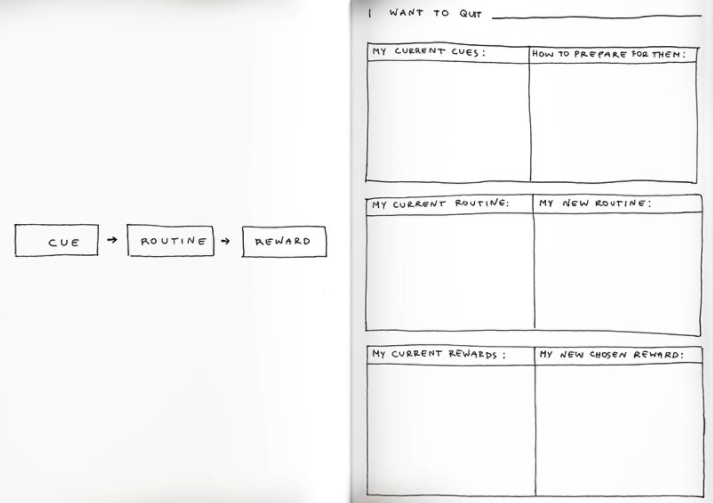 CUE → ROUTINE → REWARD
I WANT TO QUIT
MY CURRENT CUES:
HOW TO PREPARE FOR THEM:
MY CURRENT ROUTINE:
MY NEW ROUTINE:
MY CURRENT REWARDS:
MY NEW CHOSEN REWARD: